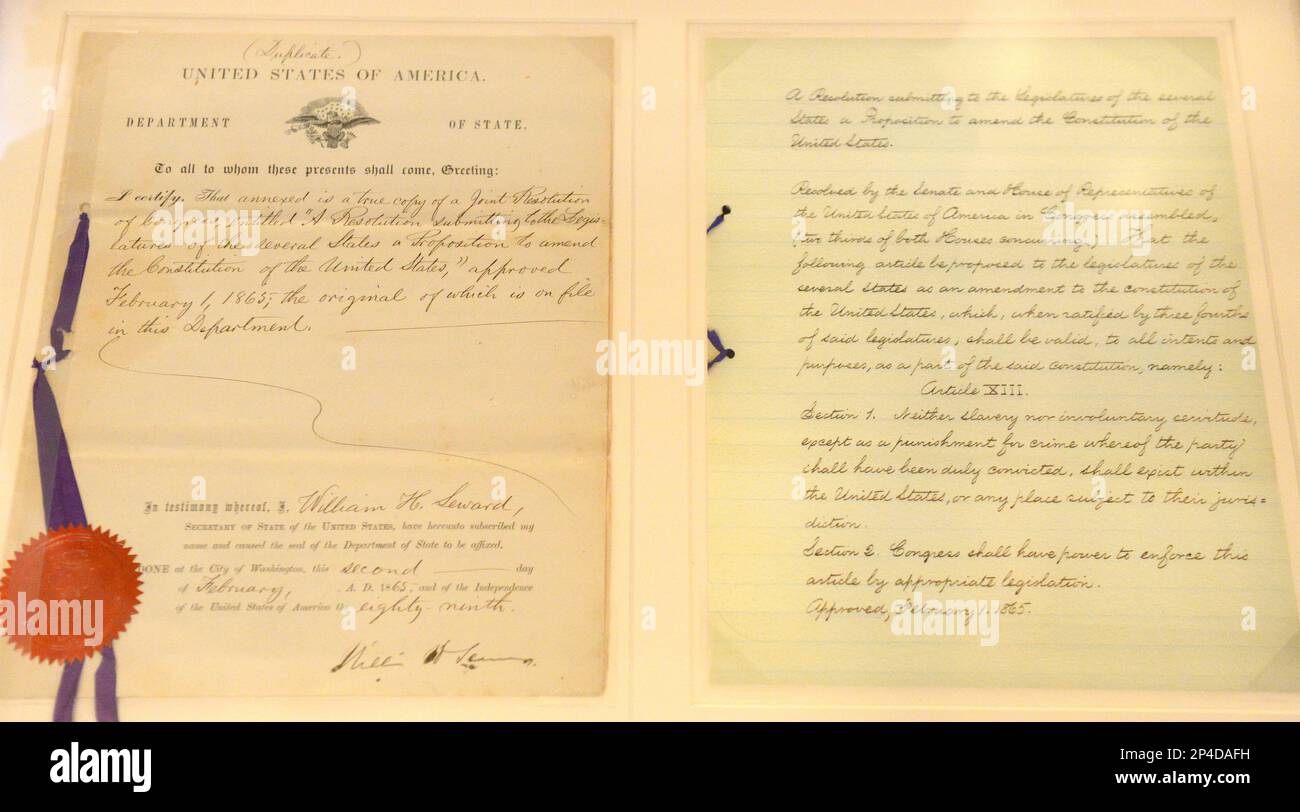 (Duplicate.)
UNITED STATES OF AMERICA.
DEPARTMENT OF STATE.
To all to whom these presents shall come, Greeting:
I certify, That annexed is a true copy of a Joint Resolution
of Congress, entitled "A Resolution submitting to the Legis-
latures of the several States a Proposition to amend
the Constitution of the United States," approved
February 1, 1865; the original of which is on file
in this Department.
In testimony whereof, I, William H. Seward,
SECRETARY OF STATE of the UNITED STATES, have hereunto subscribed my
name and caused the seal of the Department of State to be affixed.
DONE at the City of Washington, this second day
of February, A. D. 1865, and of the Independence
of the United States of America the eighty-ninth.
William H Seward
A Resolution submitting to the Legislatures of the several
States a Proposition to amend the Constitution of the
United States.
Resolved by the Senate and House of Representatives of
the United States of America in Congress assembled,
(two thirds of both Houses concurring,) That the
following article be proposed to the legislatures of the
several states as an amendment to the constitution of
the United States, which, when ratified by three fourths
of said legislatures, shall be valid, to all intents and
purposes, as a part of the said constitution, namely:
Article XIII.
Section 1. Neither slavery nor involuntary servitude,
except as a punishment for crime whereof the party
shall have been duly convicted, shall exist within
the United States, or any place subject to their juris=
diction.
Section 2. Congress shall have power to enforce this
article by appropriate legislation.
Approved, February 1. 1865.
alamy
alamy
Image ID: 2P4DAFH
www.alamy.com